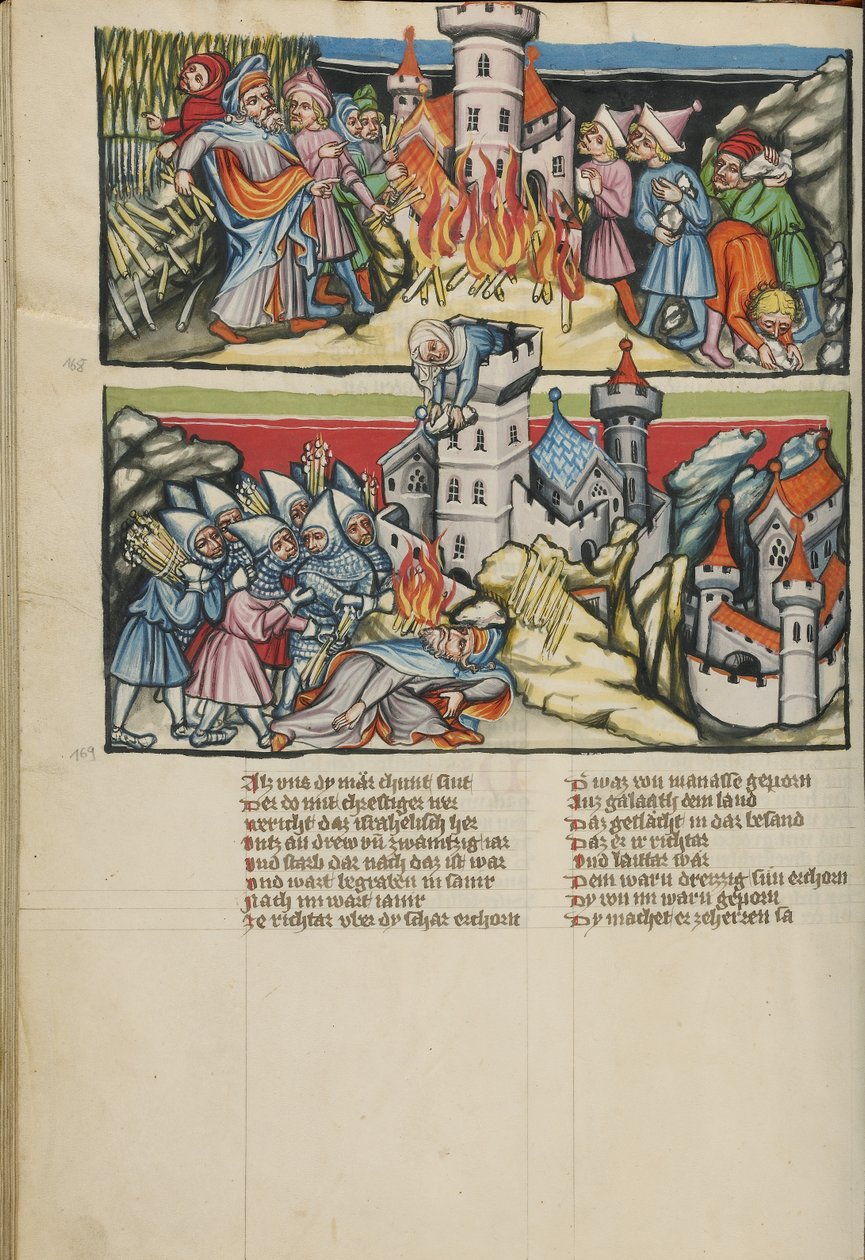 168
169
Alz vns dy mär chunt sint
Der do mit chreftiger wer
vericht daz israhelisch her
vntz an drew vñ zwaintzig iar
vnd starb dar nach daz ist war
vnd wart begraben in samir
Nach im wart iair
Ze richtar vber dy schar erchorn
Dˢ waz von manasse geporn
Auz galaath dem land
Daz geslächt in dar besand
Daz er ir richtar
vnd laittar wär
Dem warn dreizzig sün erchorn
Dy von im warn geporn
Dy machet er ze herren sa